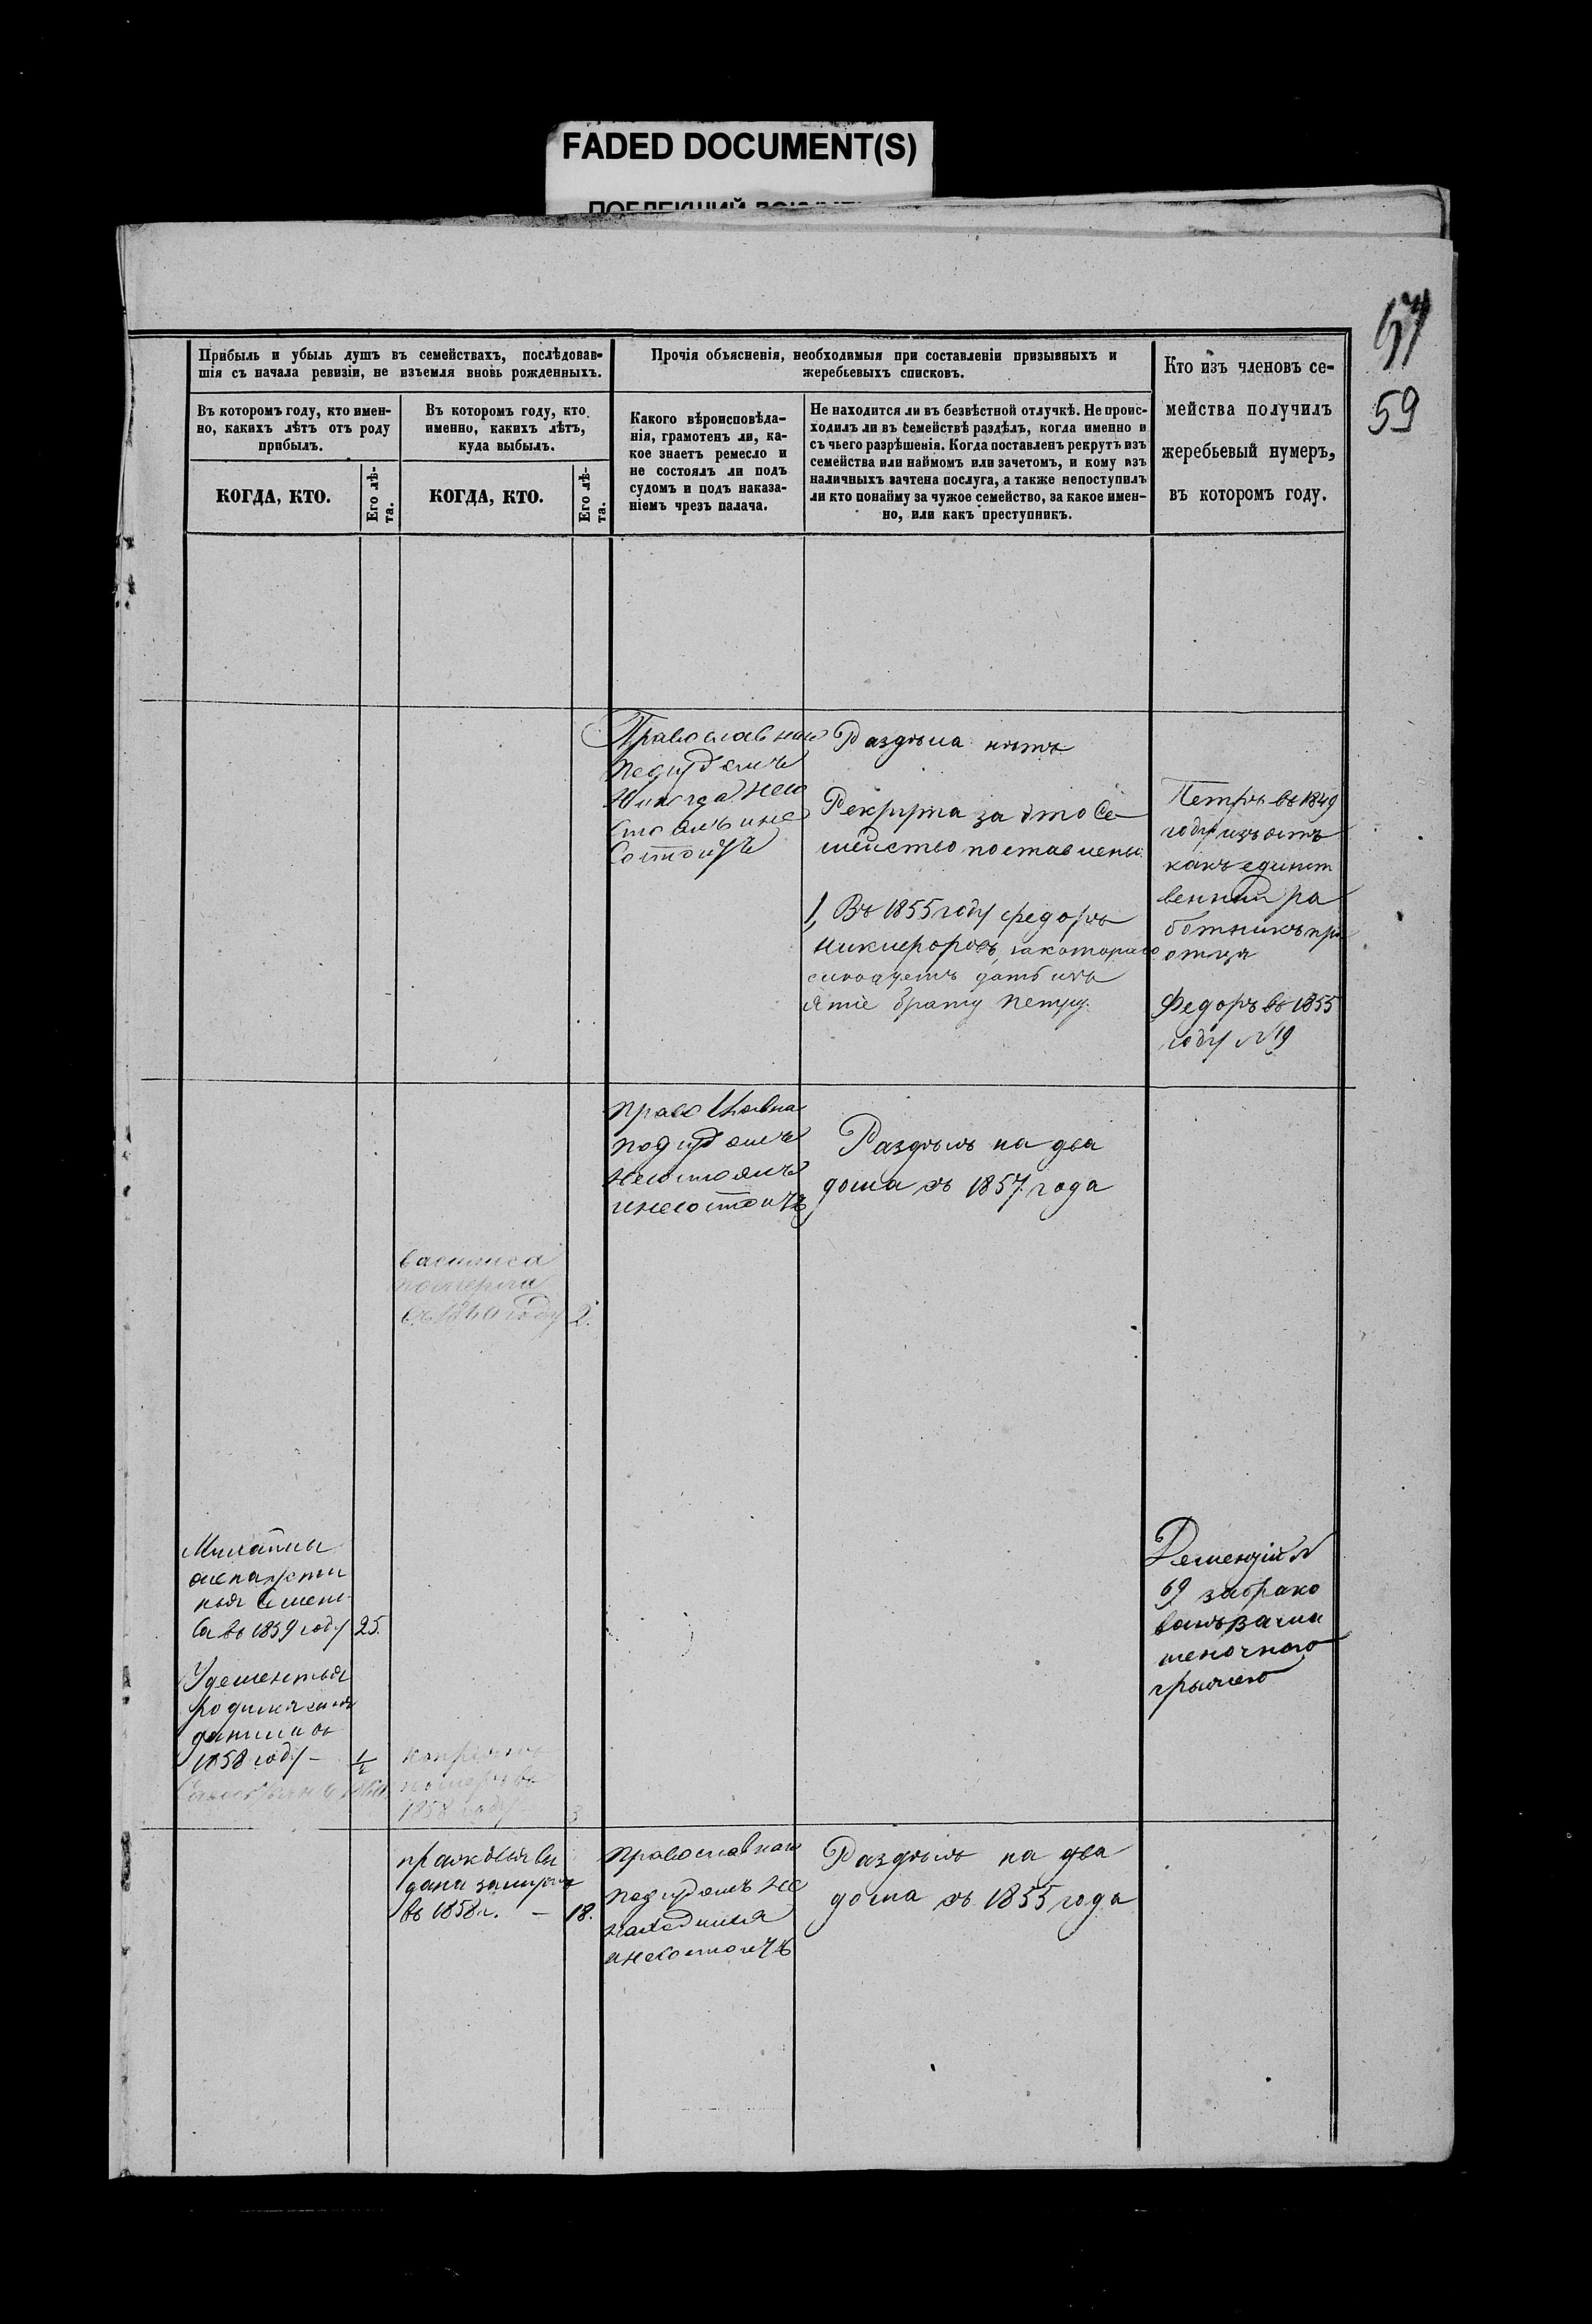 FADED DOCUMENT(S)
57
59
Прибыль и убыль душъ въ семействахъ, послѣдовав-
шія съ начала ревизіи, не изъемля вновь рожденныхъ.
Прочія объясненія, необходимыя при составленіи призывныхъ и
жеребьевыхъ списковъ.
Кто изъ членовъ се-
мейства получилъ
жеребьевый нумеръ,
въ которомъ году.
Въ которомъ году, кто имен-
но, какихъ лѣтъ отъ роду
прибылъ.
Въ которомъ году, кто
именно, какихъ лѣтъ,
куда выбылъ.
Какого вѣроисповѣда-
нія, грамотенъ ли, ка-
кое знаетъ ремесло и
не состоялъ ли подъ
судомъ и подъ наказа-
ніемъ чрезъ палача.
Не находится ли въ безвѣстной отлучкѣ. Не проис-
ходилъ ли въ семействѣ раздѣлъ, когда именно и
съ чьего разрѣшенія. Когда поставленъ рекрутъ изъ
семейства или наймомъ или зачетомъ, и кому изъ
наличныхъ зачтена послуга, а также непоступилъ
ли кто понайму за чужое семейство, за какое имен-
но, или какъ преступникъ.
КОГДА, КТО.
Его лѣ-
та.
КОГДА, КТО.
Его лѣ-
та.
Православнаго
подсудомъ
Никогда несо
стоялъ и не
Состоитъ
Раздѣла нѣтъ
Рекрута за это Се-
мейство поставлены
1, Въ 1855 году Федоръ
Никифоровъ, за котораго
слѣдуетъ дать изъ
ятіе брату Петру.
Петръ въ 1849
году изъятъ
какъ единст
венный ра
ботникъ при
отцѣ
Федоръ въ 1855
году №19
Православна
подсудомъ
Несостоялъ
инесостоитъ
Раздѣлъ на два
дома съ 1857 года
Василиса
померла
2.
въ 1859 году 25.
1858 году - 1/2
померъ въ
1858 году 3
69 забрако
ванъ за
Прасковья вы
дана замужъ
въ 1858 г. - 18.
Православнаго
подсудомъ не
находился
инесостоитъ
Раздѣлъ на два
дома съ 1855 года